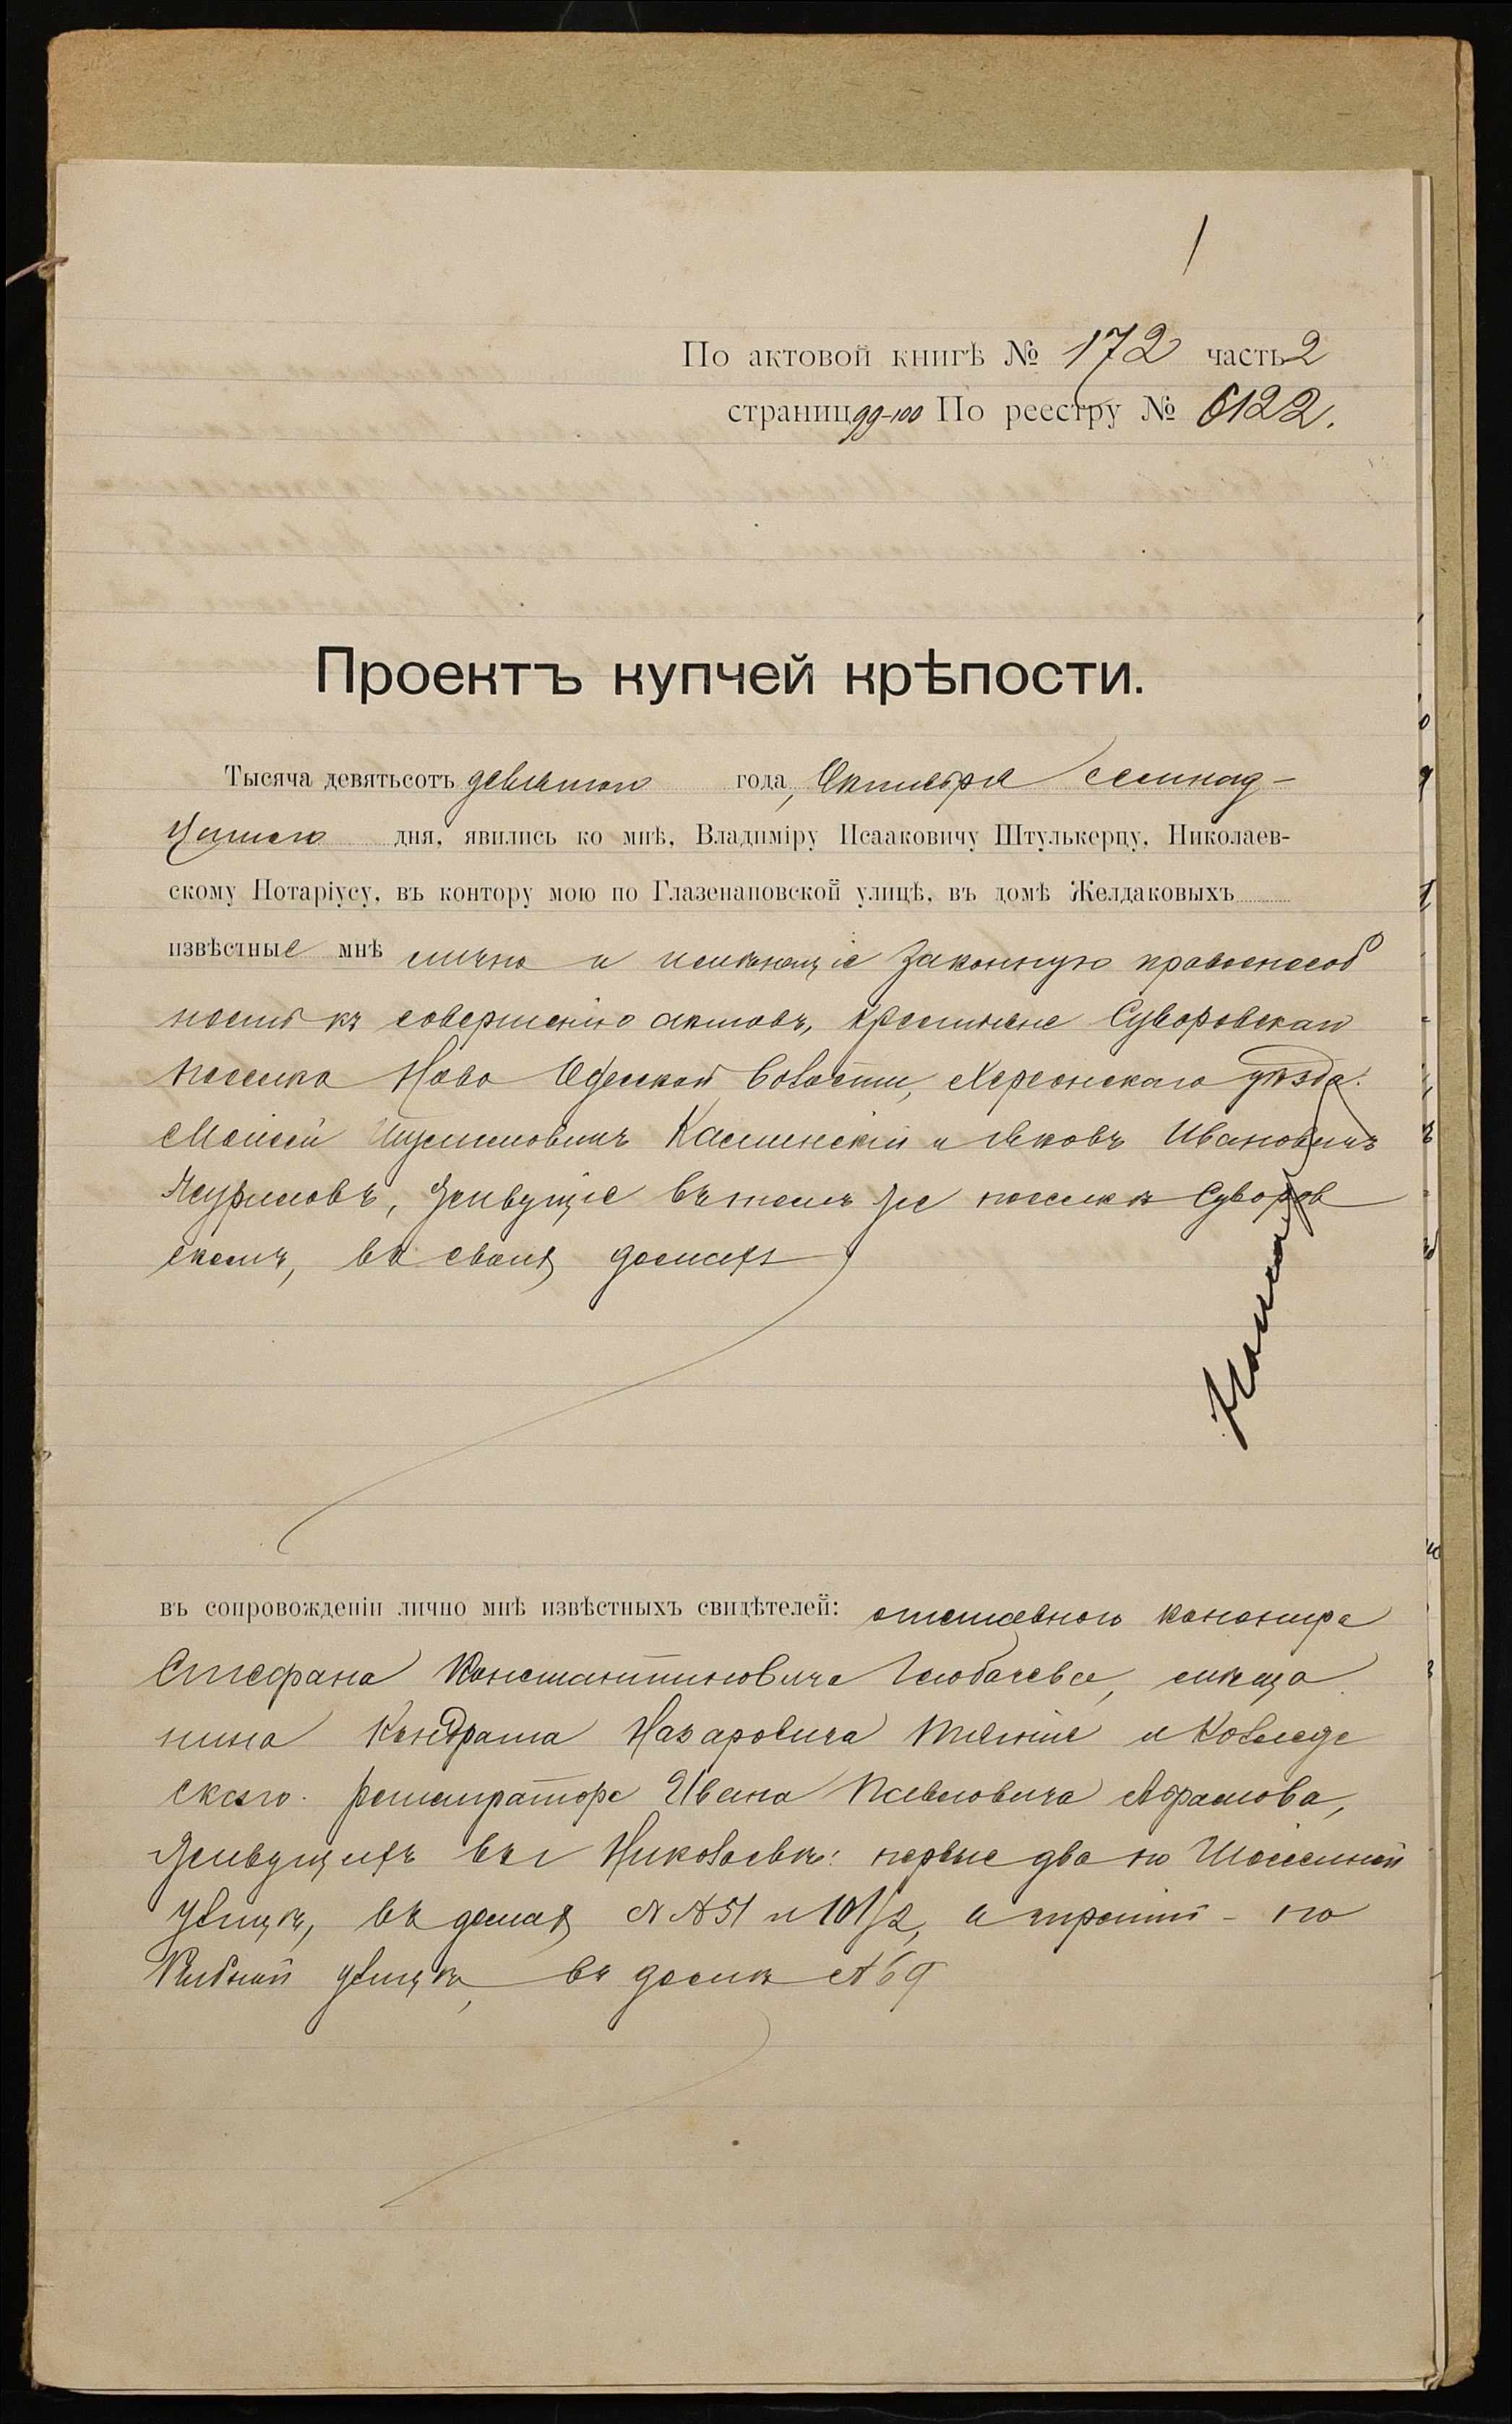 1
По актовой книгѣ № 172 часть 2
страниц 99-100 По реестру № 6122.
Проектъ купчей крѣпости.
Тысяча девятьсотъ девятого года, Октября семнад-
цатого дня, явились ко мнѣ, Владиміру Исааковичу Штулькерцу, Николаев-
скому Нотаріусу, въ контору мою по Глазенаповской улицѣ, въ домѣ Желдаковыхъ
извѣстные мнѣ лично и имѣющіе законную правоспособ
ность къ совершенію актовъ, крестьяне Суворовскаго
поселка Ново Одесской волости, Херсонскаго уѣзда:
Моисей Каминскій и Яковъ Ивановичъ
живущіе въ томъ же поселкѣ Суворов
скомъ, въ своихъ домахъ
въ сопровожденіи лично мнѣ извѣстныхъ свидѣтелей: отставного канонира
Стефана Константиновича Голобачева, мѣща
нина Кондрата Назаровича и Коллеже
скаго регистратора Ивана Павловича Абрамова,
живущихъ въ г Николаевѣ: первые два по
улицѣ, въ домах № № 51 и 101/2, а третій - по
улицѣ, въ домѣ № 69